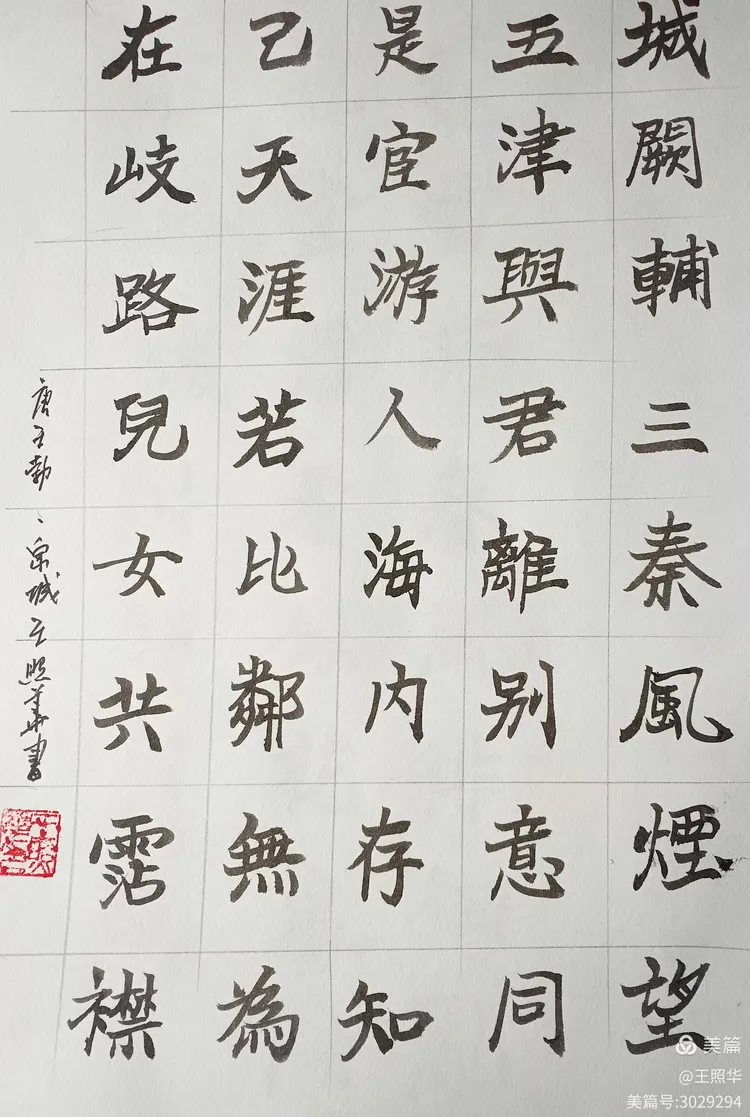 城闕輔三秦風煙望
五津與君離别意同
是宦游人海内存知
己天涯若比鄰無為
在岐路兒女共霑襟
唐王勃、泉城王照華書
美篇
@王照华
美篇号:3029294